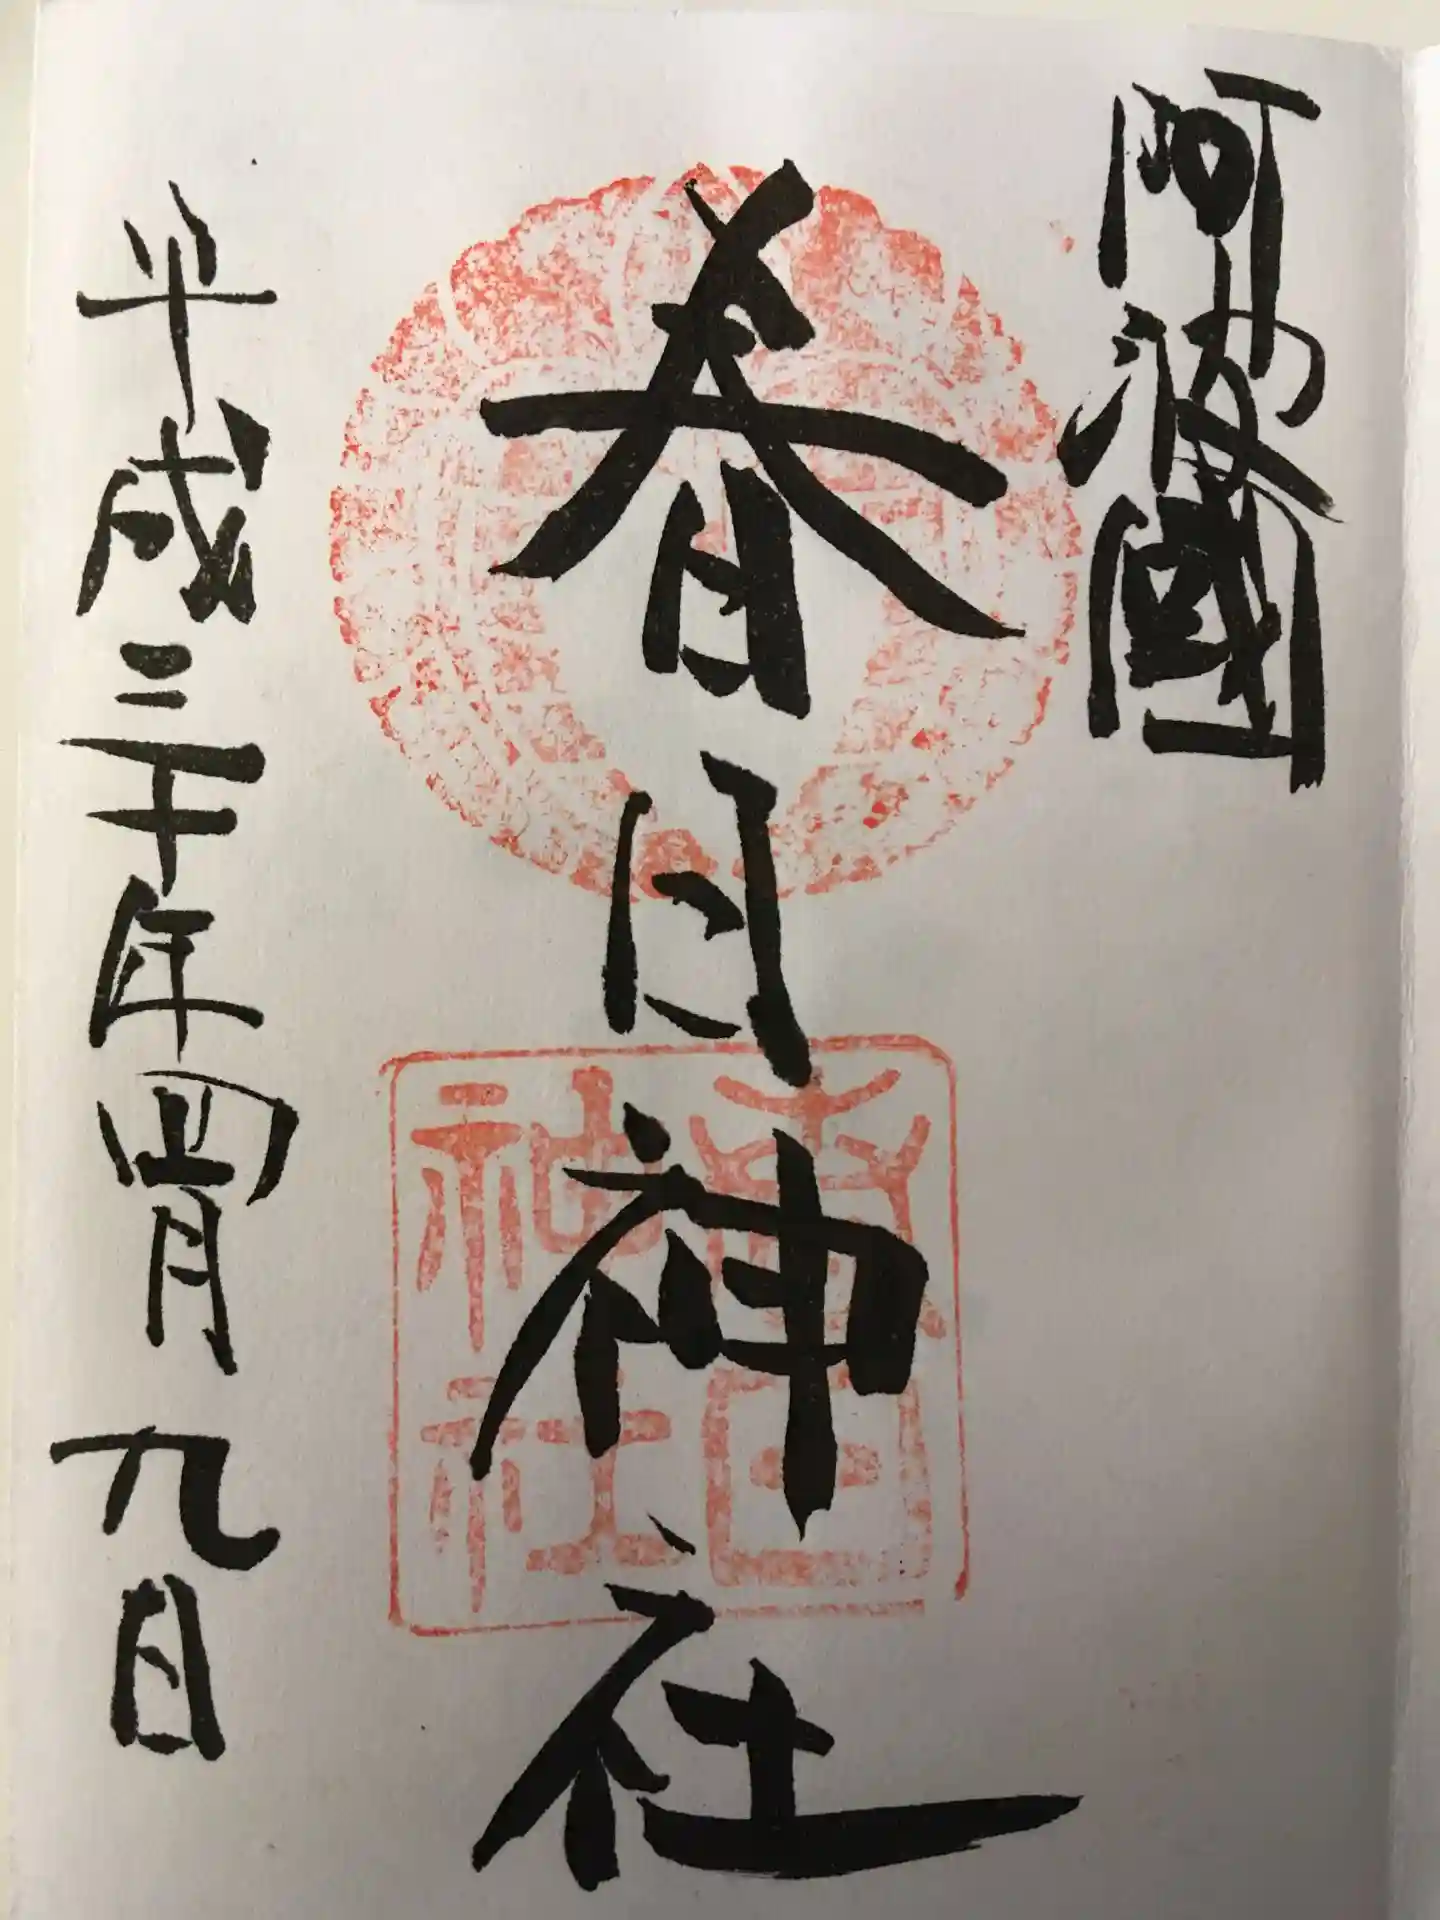 阿波國
春日神社
春日神社
平成三十年四月九日